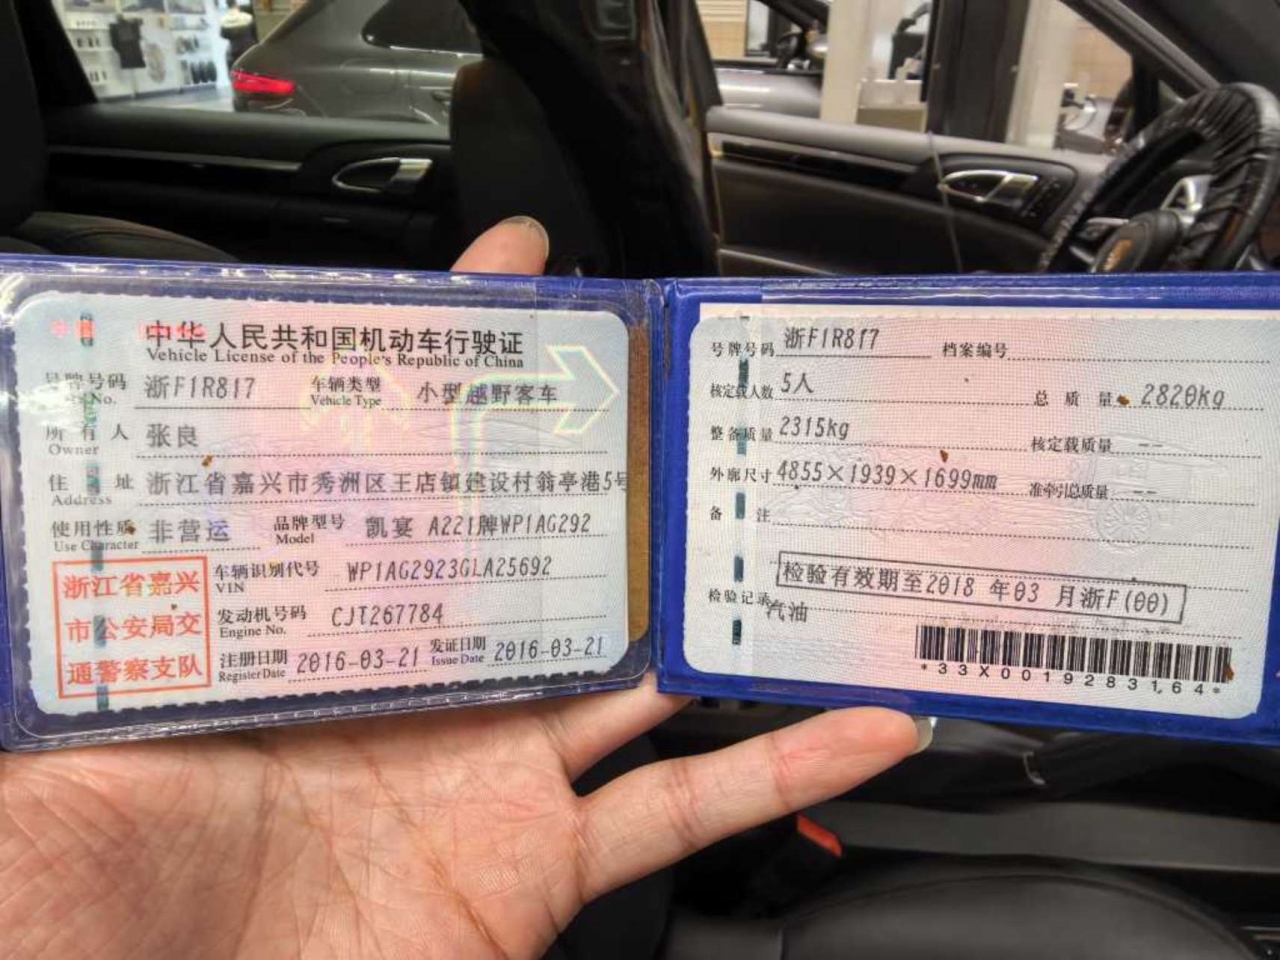 中华人民共和国机动车行驶证
Vehicle License of the People's Republic of China
号牌号码 浙F1R817 车辆类型 小型越野客车
No. Vehicle Type
所有人 张良
Owner
住址 浙江省嘉兴市秀洲区王店镇建设村翁亭港5号
Address
使用性质 非营运 品牌型号 凯宴 A221牌WP1AG292
Use Character Model
浙江省嘉兴
市公安局交
通警察支队
车辆识别代号 WP1AG2923GLA25692
VIN
发动机号码 CJT267784
Engine No.
注册日期 2016-03-21 发证日期 2016-03-21
Register Date Issue Date
号牌号码 浙F1R817 档案编号
核定载人数 5人 总质量 2820kg
整备质量 2315kg 核定载质量 --
外廓尺寸 4855×1939×1699mm 准牵引总质量 --
备注
检验有效期至2018 年03 月浙F(00)
检验记录 汽油
*33X0019283164*